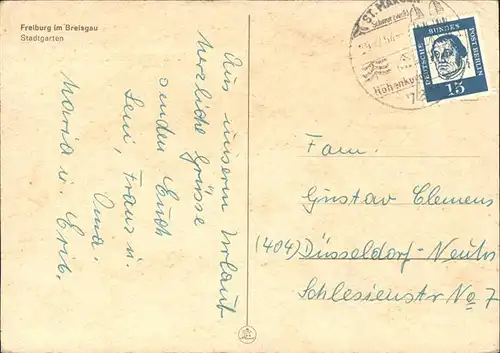 Freiburg im Breisgau
Stadtgarten
Aus unserm Urlaub
herzliche Grüsse
senden Euch
Leni, Franz u.
Oma.
Maria u. Erib.
ST. MÄRGEN
DEUTSCHE BUNDESPOST BERLIN
15
Fam.
Gustav Clemens
(404) Düsseldorf-Neuss
Schlesienstr No 7